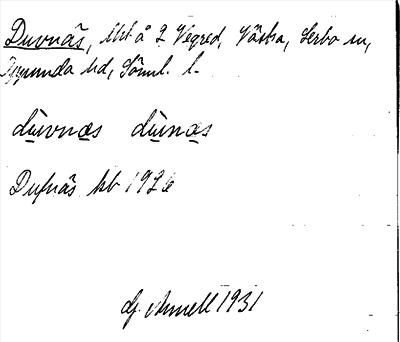 Duvnäs, lht å 2 Vegred, Västra, Lerbo sn,
Oppunda hd, Söml. l.
dùvnæs dùnæs
Dufnäs kb 1926
Gj. Annell 1931